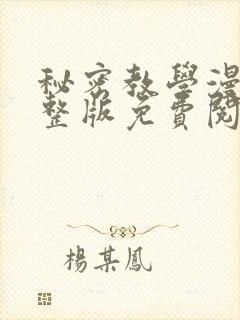 秘密教學漫
整版免費閱
楊某鳳